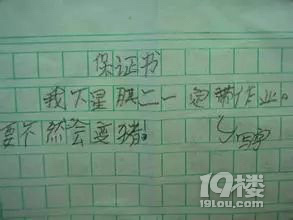 保证书
我下星期二一定带作业。
要不然会变猪!
19楼
19lou.com